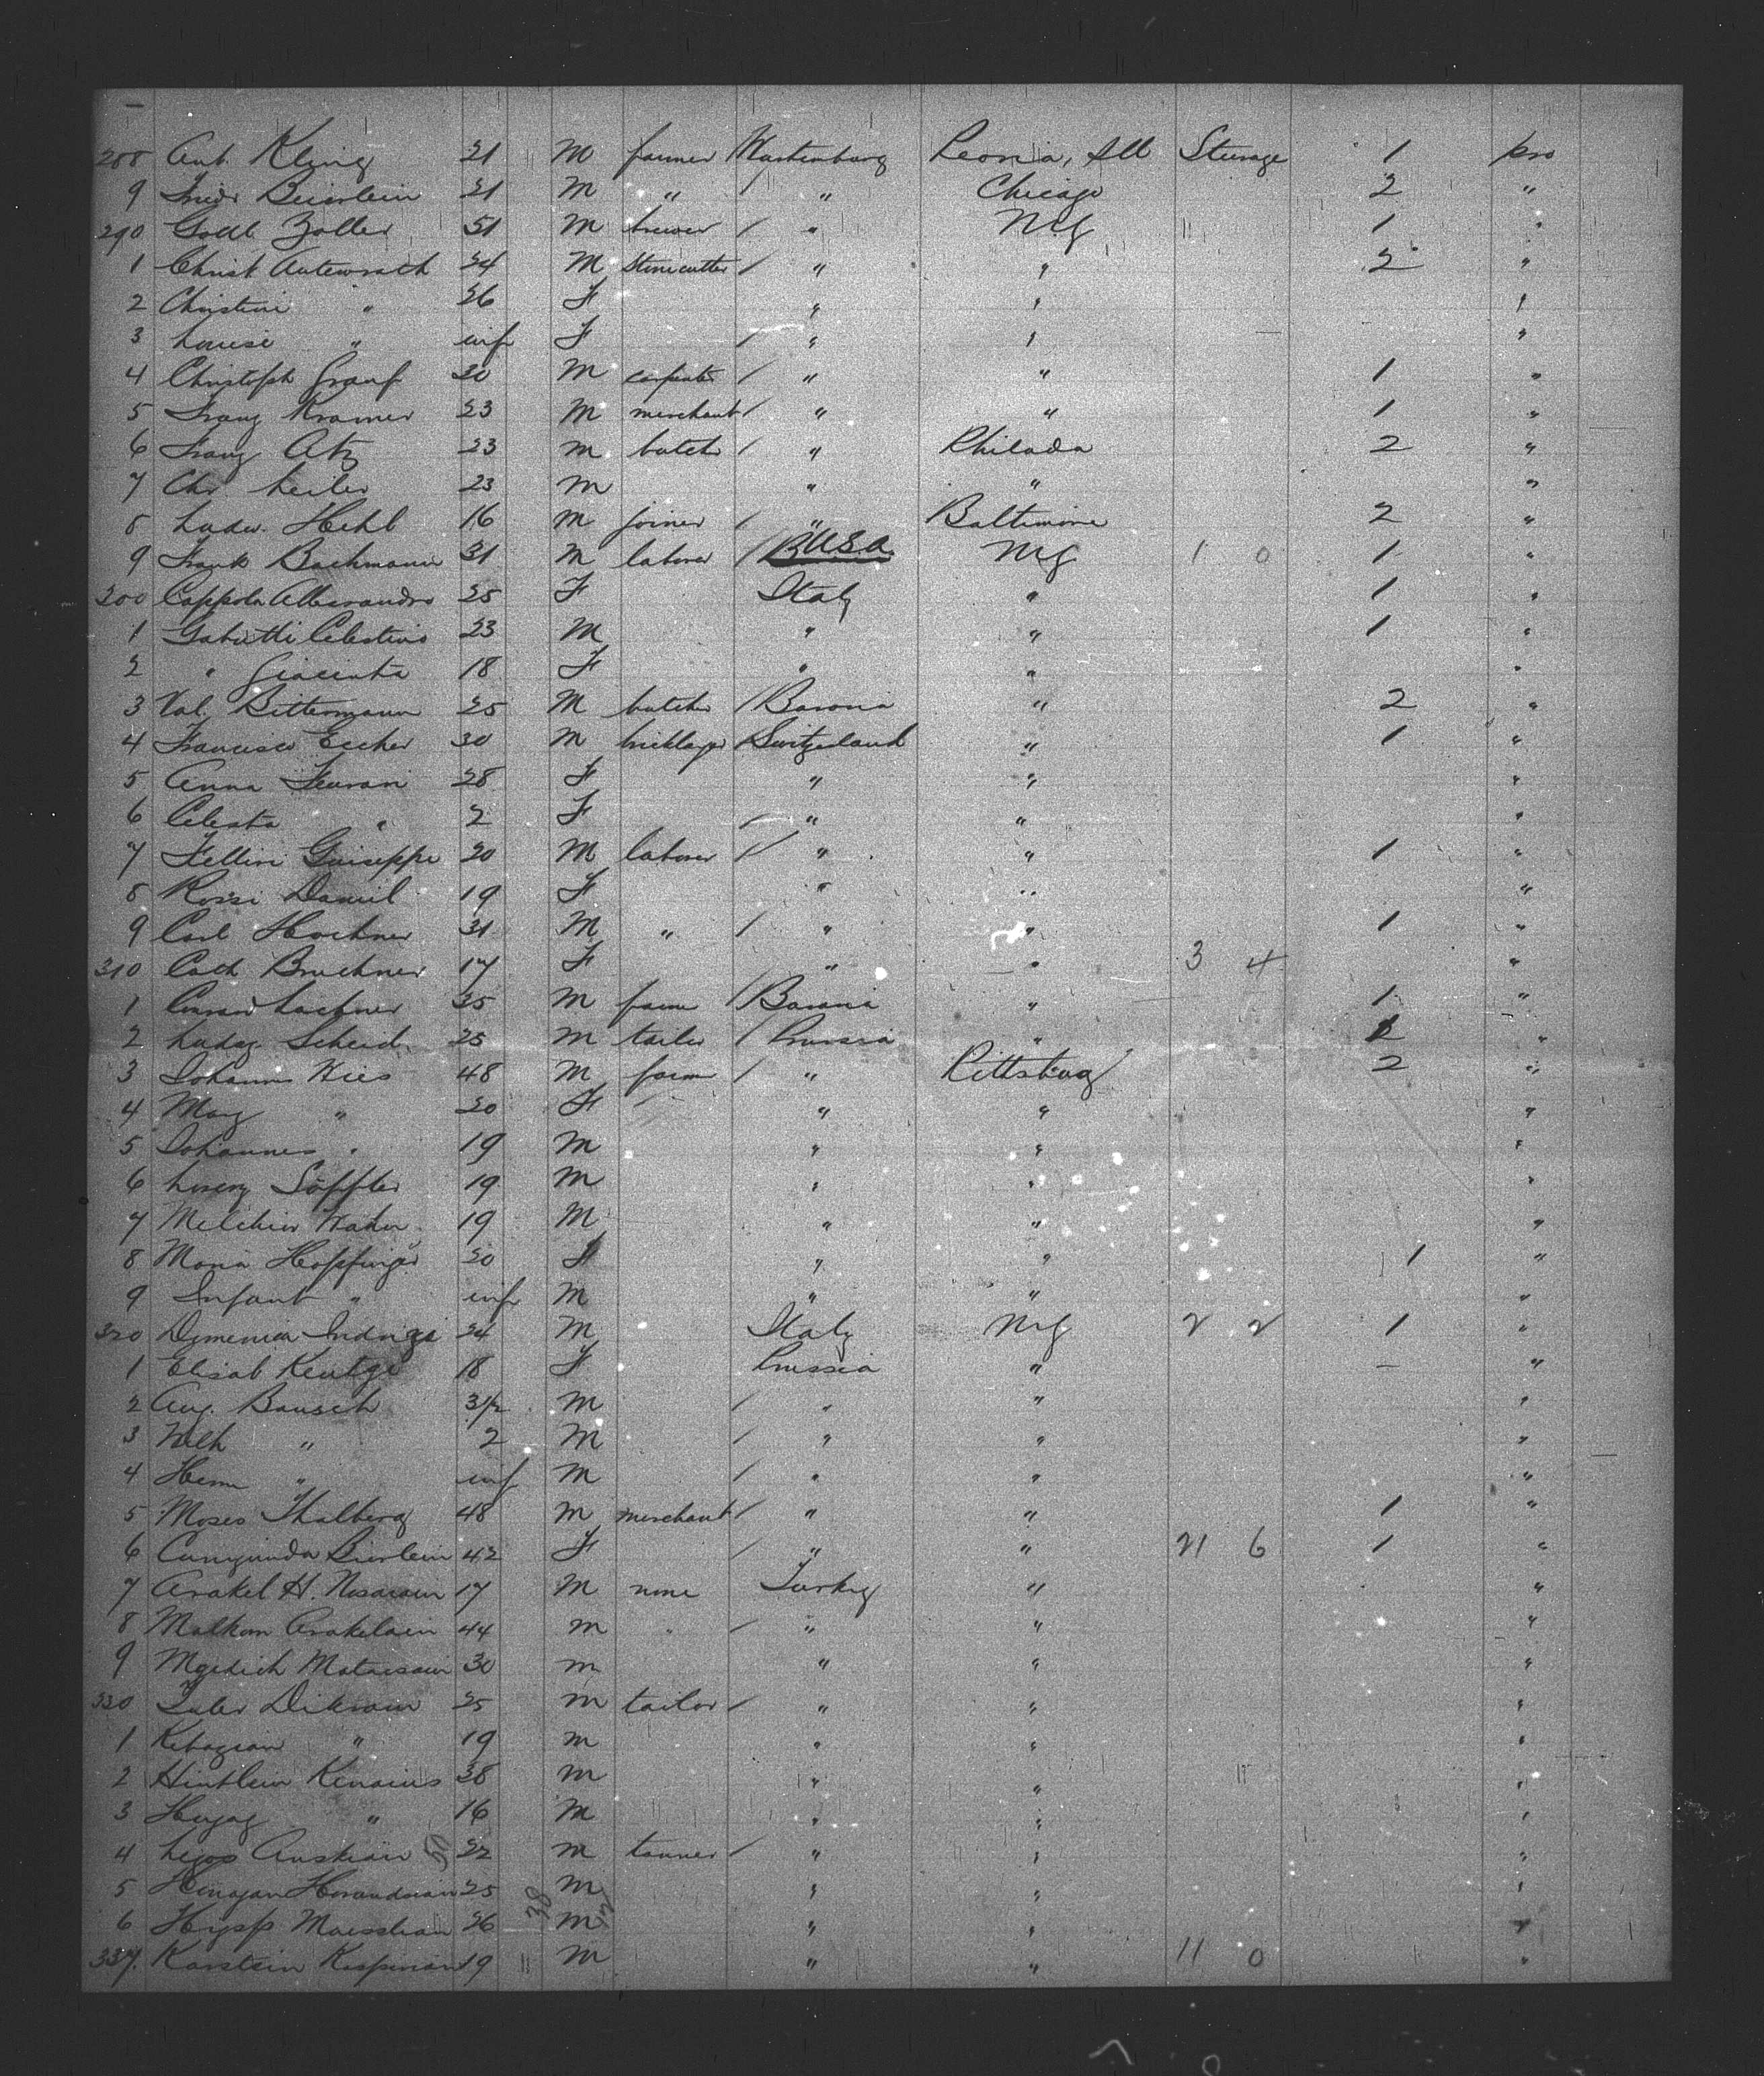 288 Ant. Kling 21 M farmer Wurtemburg Peoria, Ill Steerage 1 pro
9 Friedr Beierlein 21 M " " Chicago 2 "
290 Gottl. Zoller 51 M brewer / " NY 1 "
1 Christ. Autenrath 24 M Stonecutter / " " 2 "
2 Christine " 26 F " " "
3 Louise " inf F / " " "
4 Christoph Grauf 20 M carpenter / " " 1 "
5 Franz Kramer 23 M merchant / " " 1 "
6 Franz Atz 23 M butcher / " Philada 2 "
7 Chr. Leiler 23 M " " "
8 Ludw. Hehl 16 M joiner / " Baltimore 2 "
9 Frank Bachmann 31 M laborer / USA NY 1 0 1 "
300 Coppola Allesandro 25 F Italy " 1 "
1 Gabutti Celestino 23 M " " 1 "
2 " Giacinta 18 F " " "
3 Val. Bittermann 25 M butcher / Bavaria " 2 "
4 Francisco Eccher 30 M bricklayer / Switzerland " 1 "
5 Anna 28 F " " "
6 Celesta " 2 F / " " "
7 Fellin Guiseppe 20 M laborer / " " 1 "
8 Rossi Daniel 19 F " " "
9 Carl Hochner 31 M " / " " 1 "
310 Cath Bruckner 17 F / " " 3 4 "
1 Conrad Lachner 35 M farm / Bavaria " 1 "
2 Scheid 25 M tailor / Prussia " 2 "
3 Johannes Kies 48 M farm / " Pittsburg 2 "
4 Marg " 20 F " " "
5 Johannes " 19 M " " "
6 Lorenz Söffler 19 M " " "
7 Melchior 19 M " " "
8 Maria Hopfinger 20 F " " 1 "
9 Infant " inf M " " "
320 Domenica Indrigi 24 M Italy NY 2 2 1 "
1 Elisab Keutge 18 F Prussia " - "
2 Aug. Bausch 3 1/2 M / " " "
3 Wilh " 2 M / " " "
4 Herm " inf M / " " "
5 Moses Thalberg 48 M merchant / " " 1 "
6 Cunigunda Bierlein 42 F / " " 21 6 1 "
7 Arakel H. Nosarain 17 M none Turkey " "
8 Malkom Arakelain 44 M " / " " "
9 Mgrdich Matosain 30 M " " "
330 Dikrain 25 M tailor / " " "
1 " 19 M " " "
2 38 M " " "
3 " 16 M " " "
4 22 M tanner / " " "
5 25 M " " "
6 26 M " " "
337. 19 M " " 11 0 "